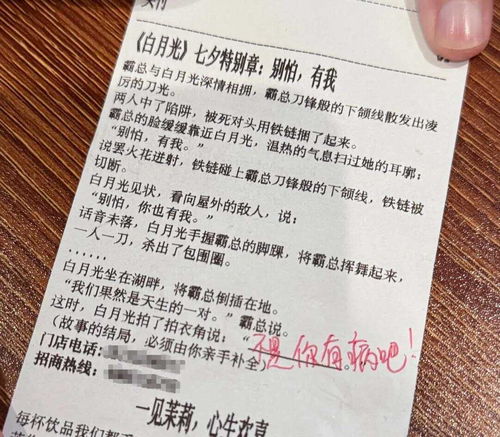 《白月光》七夕特别章：别怕，有我
霸总与白月光深情相拥，霸总刀锋般的下颌线散发出凌
厉的刀光。
两人中了陷阱，被死对头用铁链捆了起来。
霸总的脸缓缓靠近白月光，温热的气息扫过她的耳廓：
“别怕，有我。”
说罢火花迸射，铁链碰上霸总刀锋般的下颌线，铁链被
切断。
白月光见状，看向屋外的敌人，说：
“别怕，你也有我。”
话音未落，白月光手握霸总的脚踝，将霸总挥舞起来，
一人一刀，杀出了包围圈。
......
白月光坐在湖畔，将霸总倒插在地。
“我们果然是天生的一对。”霸总说。
这时，白月光拍了拍衣角说：“不是，你有病吧！”。
（故事的结局，必须由你亲手补全）
门店电话：
招商热线：
一见茉莉，心生欢喜